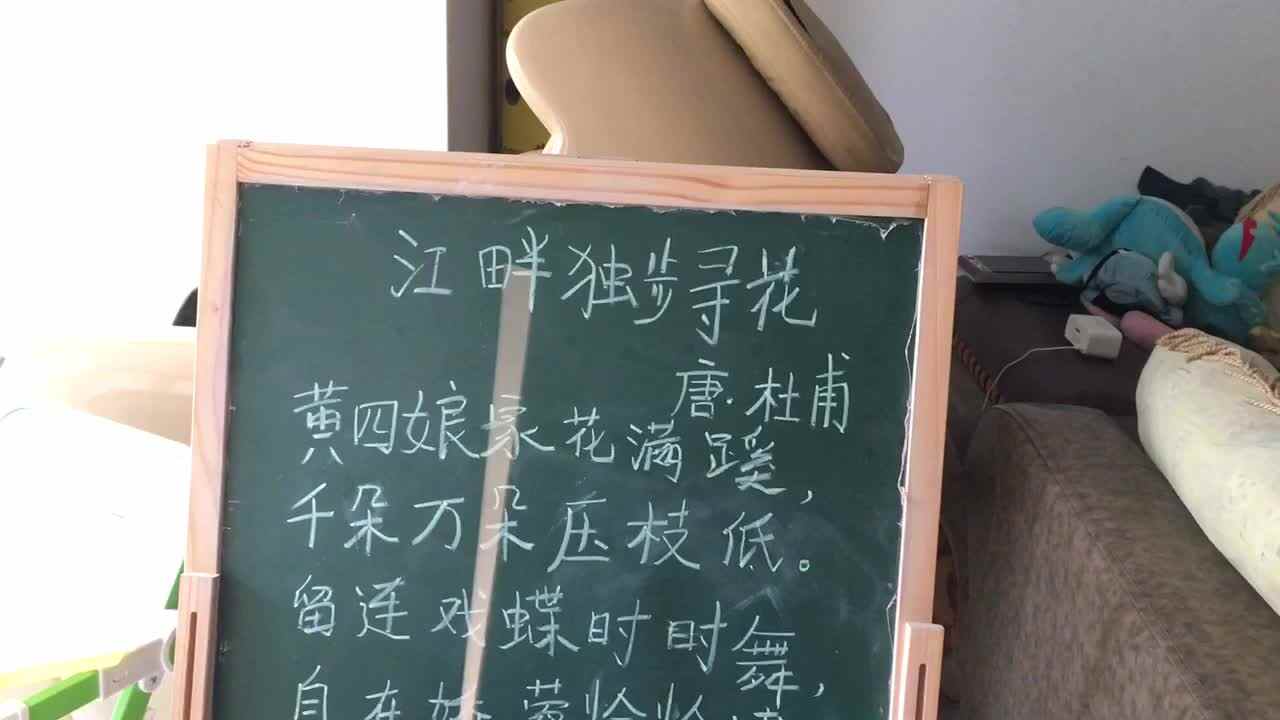 江畔独步寻花
唐·杜甫
黄四娘家花满蹊，
千朵万朵压枝低。
留连戏蝶时时舞，
自在娇莺恰恰